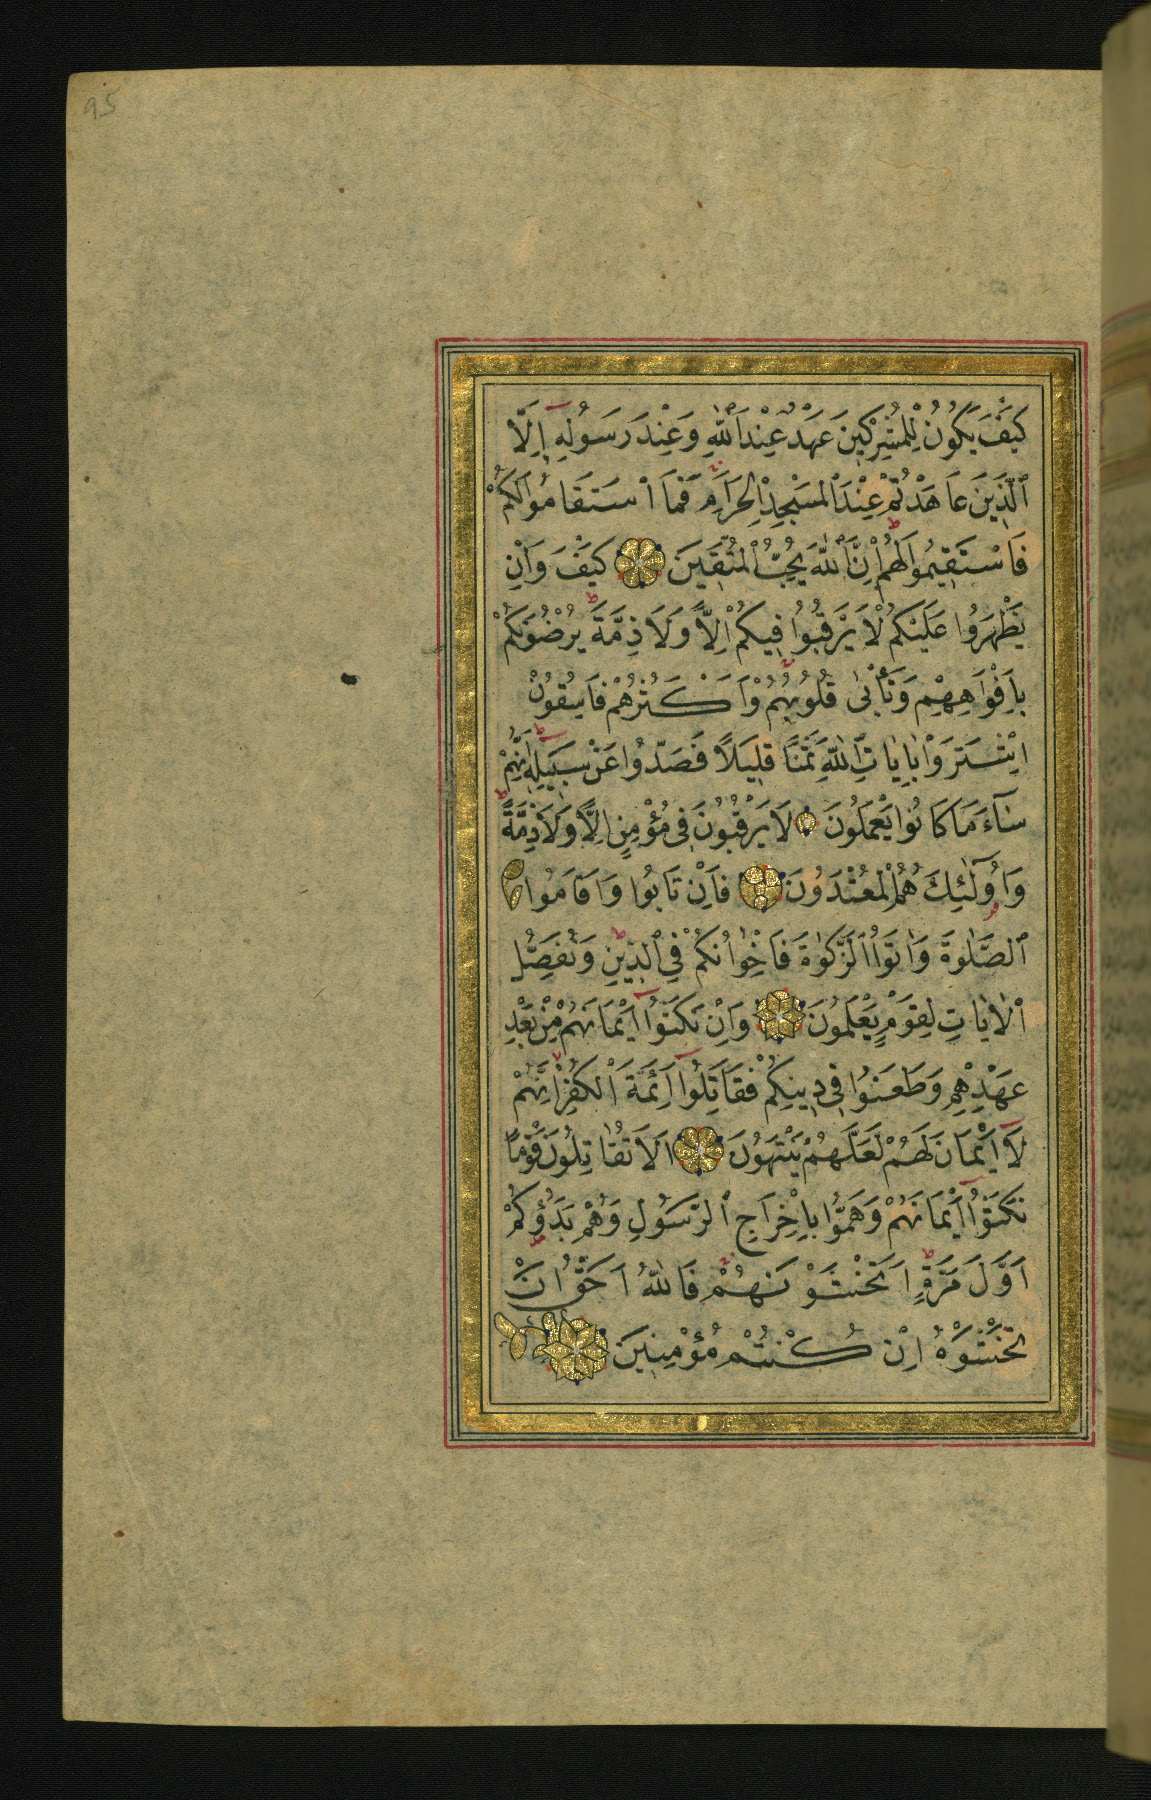 95
كَيْفَ يَكُونُ لِلْمُشْرِكِينَ عَهْدٌ عِنْدَ ٱللّٰهِ وَعِنْدَ رَسُولِهِٓ اِلَّا
ٱلَّذِينَ عَاهَدْتُمْ عِنْدَ ٱلْمَسْجِدِ ٱلْحَرَامِ فَمَا ٱسْتَقَامُوا لَكُمْ
فَاسْتَقِيمُوا لَهُمْ اِنَّ ٱللّٰهَ يُحِبُّ ٱلْمُتَّقِينَ كَيْفَ وَاِنْ
يَظْهَرُوا عَلَيْكُمْ لَا يَرْقُبُوا فِيكُمْ اِلًّا وَلَا ذِمَّةً يُرْضُونَكُمْ
بِاَفْوَاهِهِمْ وَتَأْبٰى قُلُوبُهُمْ وَاَكْثَرُهُمْ فَاسِقُونَ
اِشْتَرَوْا بِاٰيَاتِ ٱللّٰهِ ثَمَنًا قَلِيلًا فَصَدُّوا عَنْ سَبِيلِهِ اِنَّهُمْ
سَآءَ مَا كَانُوا يَعْمَلُونَ لَا يَرْقُبُونَ فِى مُؤْمِنٍ اِلًّا وَلَا ذِمَّةً
وَاُولٰٓئِكَ هُمُ ٱلْمُعْتَدُونَ فَاِنْ تَابُوا وَاَقَامُوا
ٱلصَّلٰوةَ وَاٰتَوُا ٱلزَّكٰوةَ فَاِخْوَانُكُمْ فِى ٱلدِّينِ وَنُفَصِّلُ
ٱلْاٰيَاتِ لِقَوْمٍ يَعْلَمُونَ وَاِنْ نَكَثُوٓا اَيْمَانَهُمْ مِنْ بَعْدِ
عَهْدِهِمْ وَطَعَنُوا فِى دِينِكُمْ فَقَاتِلُوٓا اَئِمَّةَ ٱلْكُفْرِ اِنَّهُمْ
لَآ اَيْمَانَ لَهُمْ لَعَلَّهُمْ يَنْتَهُونَ اَلَا تُقَاتِلُونَ قَوْمًا
نَكَثُوٓا اَيْمَانَهُمْ وَهَمُّوا بِاِخْرَاجِ ٱلرَّسُولِ وَهُمْ بَدَؤُكُمْ
اَوَّلَ مَرَّةٍ اَتَخْشَوْنَهُمْ فَاللّٰهُ اَحَقُّ اَنْ
تَخْشَوْهُ اِنْ كُنْتُمْ مُؤْمِنِينَ